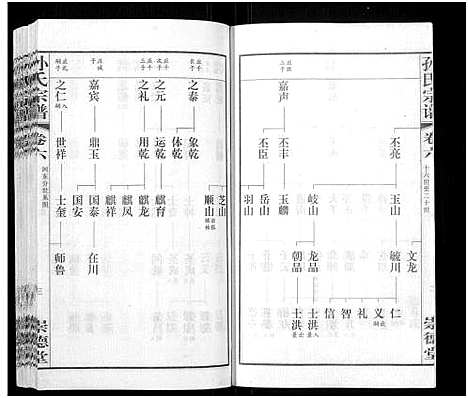 孙氏宗谱
卷六
十六世至二十世
崇德堂
嘉声
丕亮
丕丰
丕臣
玉山
岐山
玉麟
岳山
羽山
文龙
毓川
龙品
朝品
仁
义
礼
智
信
士洪
士洪
之泰
之元
之礼
嘉宾
之仁
象乾
体乾
运乾
用乾
鼎玉
世祥
芝山
顺山
麒育
麒龙
麒凤
麒祥
国泰
国安
士奎
在川
师鲁
孙氏宗谱
卷六
崇德堂